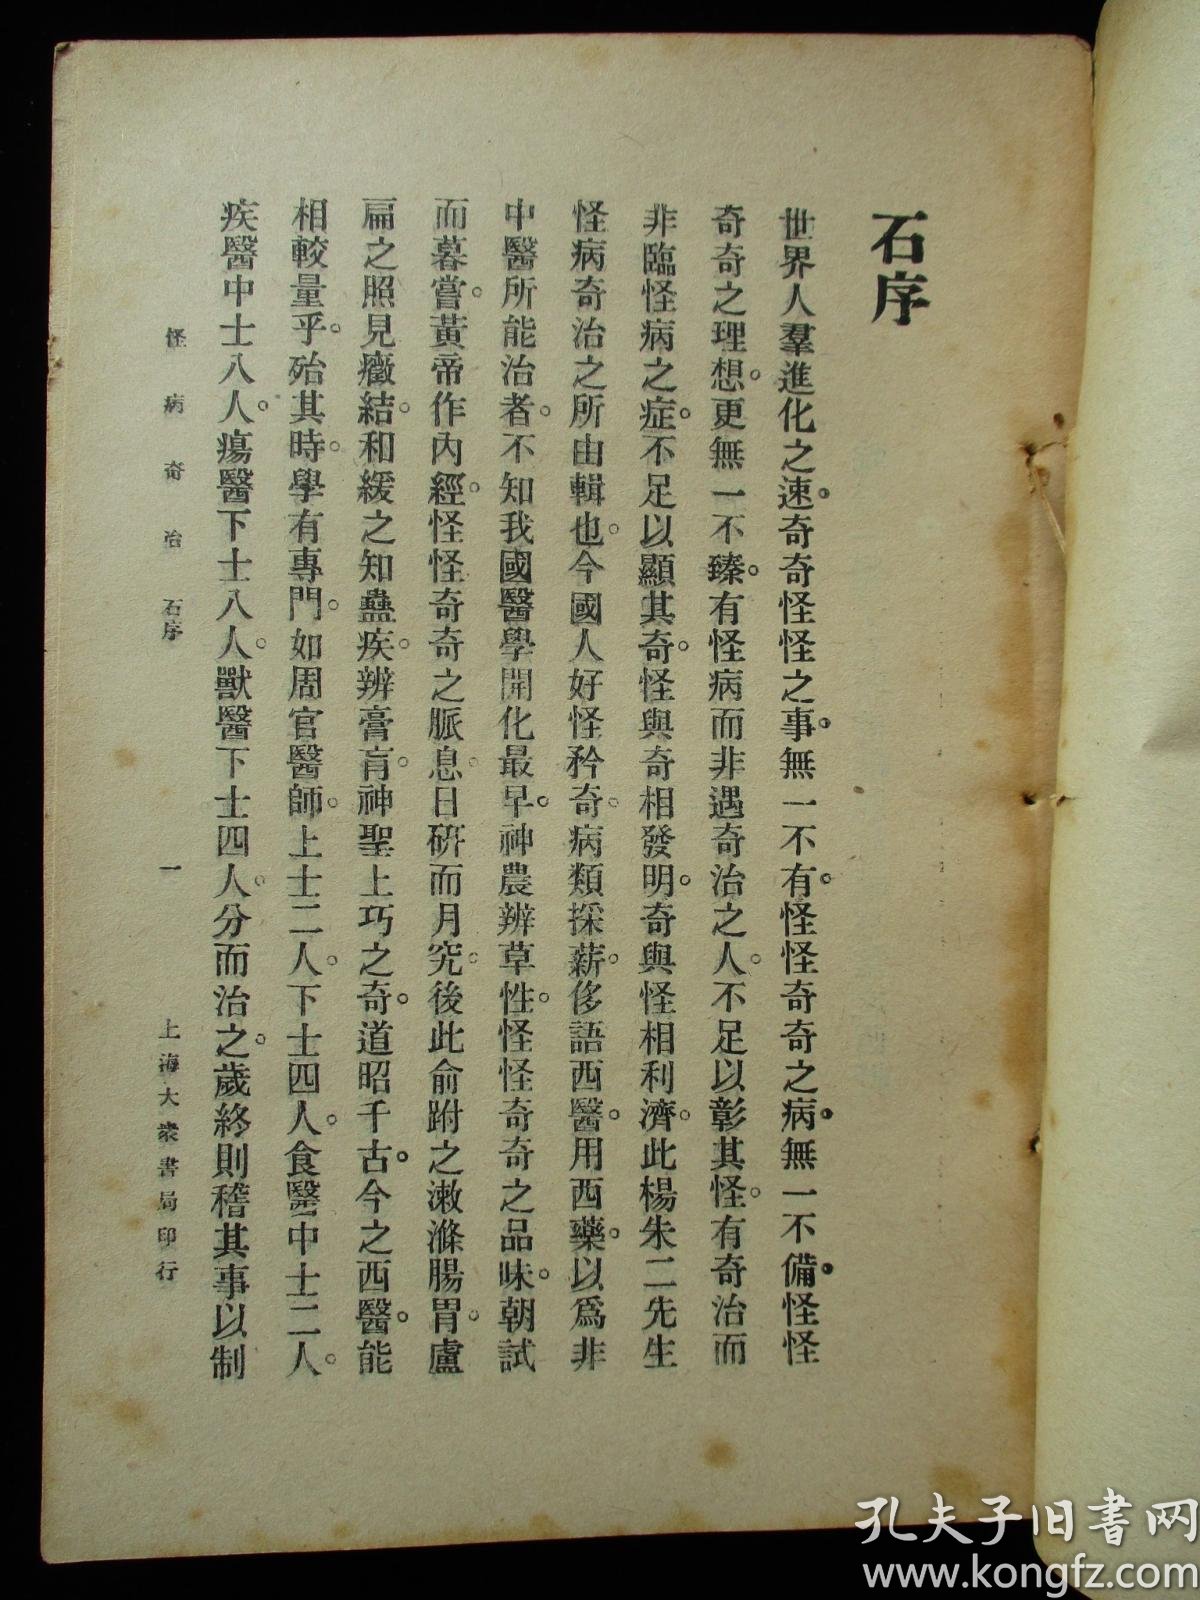 石序
世界人羣進化之速。奇奇怪怪之事。無一不有。怪怪奇奇之病。無一不備。怪怪
奇奇之理想。更無一不臻。有怪病而非遇奇治之人。不足以彰其怪。有奇治而
非臨怪病之症。不足以顯其奇。怪與奇相發明。奇與怪相利濟。此楊朱二先生
怪病奇治之所由輯也。今國人好怪矜奇。病類採薪。侈語西醫。用西藥。以爲非
中醫所能治者。不知我國醫學開化最早。神農辨草性。怪怪奇奇之品味。朝試
而暮嘗。黃帝作內經。怪怪奇奇之脈息。日硏而月究。後此俞跗之漱滌腸胃。盧
扁之照見癥結。和緩之知蠱疾。辨膏肓。神聖上巧之奇。道昭千古。今之西醫。能
相較量乎。殆其時。學有專門。如周官醫師。上士二人。下士四人。食醫中士二人。
疾醫中士八人。瘍醫下士八人。獸醫下士四人。分而治之。歲終則稽其事以制
怪病奇治 石序 一 上海大衆書局印行
孔夫子旧书网
www.kongfz.com